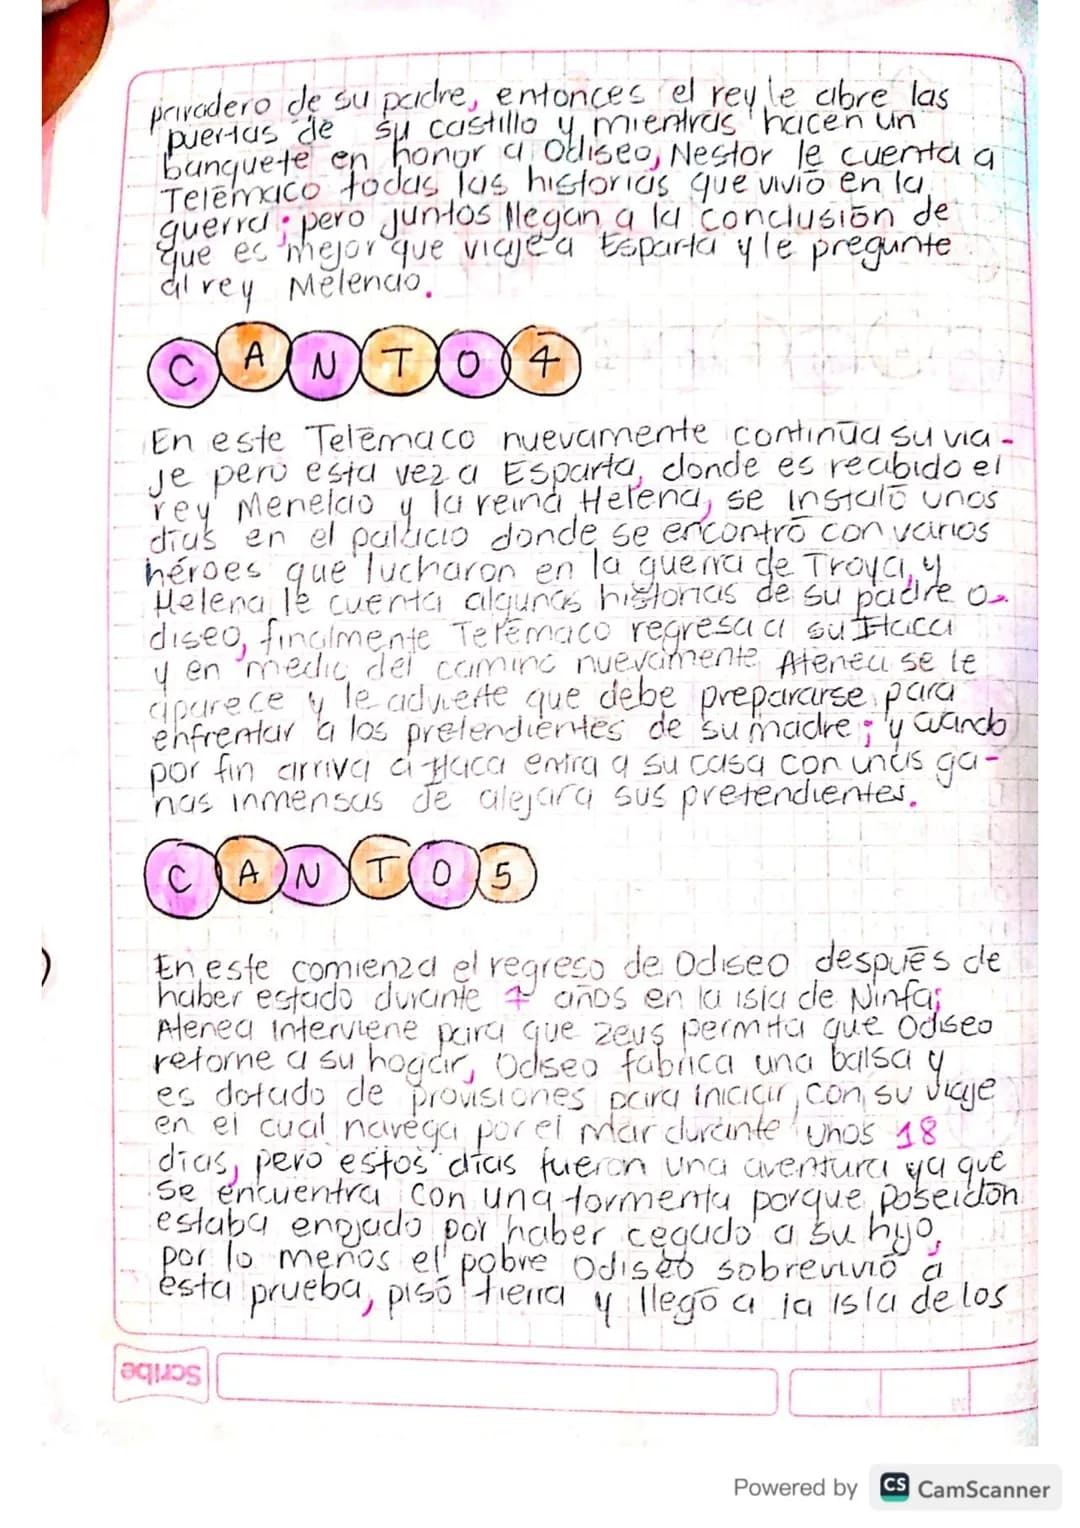 privadero de su padre, entonces el rey le abre las
puertas de su castillo y mientras hacen un
banquete en honor a Odiseo, Nestor le cuenta a
Telēmaco todas las historias que vivió en la
guerra; pero juntos llegan a la conclusión de
que es mejor que viaje a Esparta y le pregunte
al rey Melenao.
CANTO 4
En este Telēmaco nuevamente continūa su via-
je pero esta vez a Esparta, donde es recibido el
rey Menelao y la reina Helena, se instaló unos
días en el palacio donde se encontró con varios
héroes que lucharon en la guerra de Troya, y
Helena le cuenta algunas historias de su padre O-
diseo, finalmente Telēmaco regresa a su Itaca
y en medio del camino nuevamente Atenea se le
aparece y le advierte que debe prepararse para
enfrentar a los pretendientes de su madre; y cuando
por fin arriva a Itaca entra a su casa con unas ga-
nas inmensas de alejar a sus pretendientes.
CANTO 5
En este comienza el regreso de Odiseo despuēs de
haber estado durante 7 años en la isla de Ninfa;
Atenea interviene para que Zeus permita que Odiseo
retorne a su hogar, Odseo fabrica una balsa y
es dotado de provisiones para iniciar con su viaje
en el cual navega por el mar durante unos 18
días, pero estos días fueron una aventura ya que
se encuentra con una tormenta porque Poseidón
estaba enojado por haber cegado a su hijo,
por lo menos el pobre Odiseo sobrevivió a
esta prueba, pisó tierra y llegó a la isla de los
Scribe
Powered by CS CamScanner